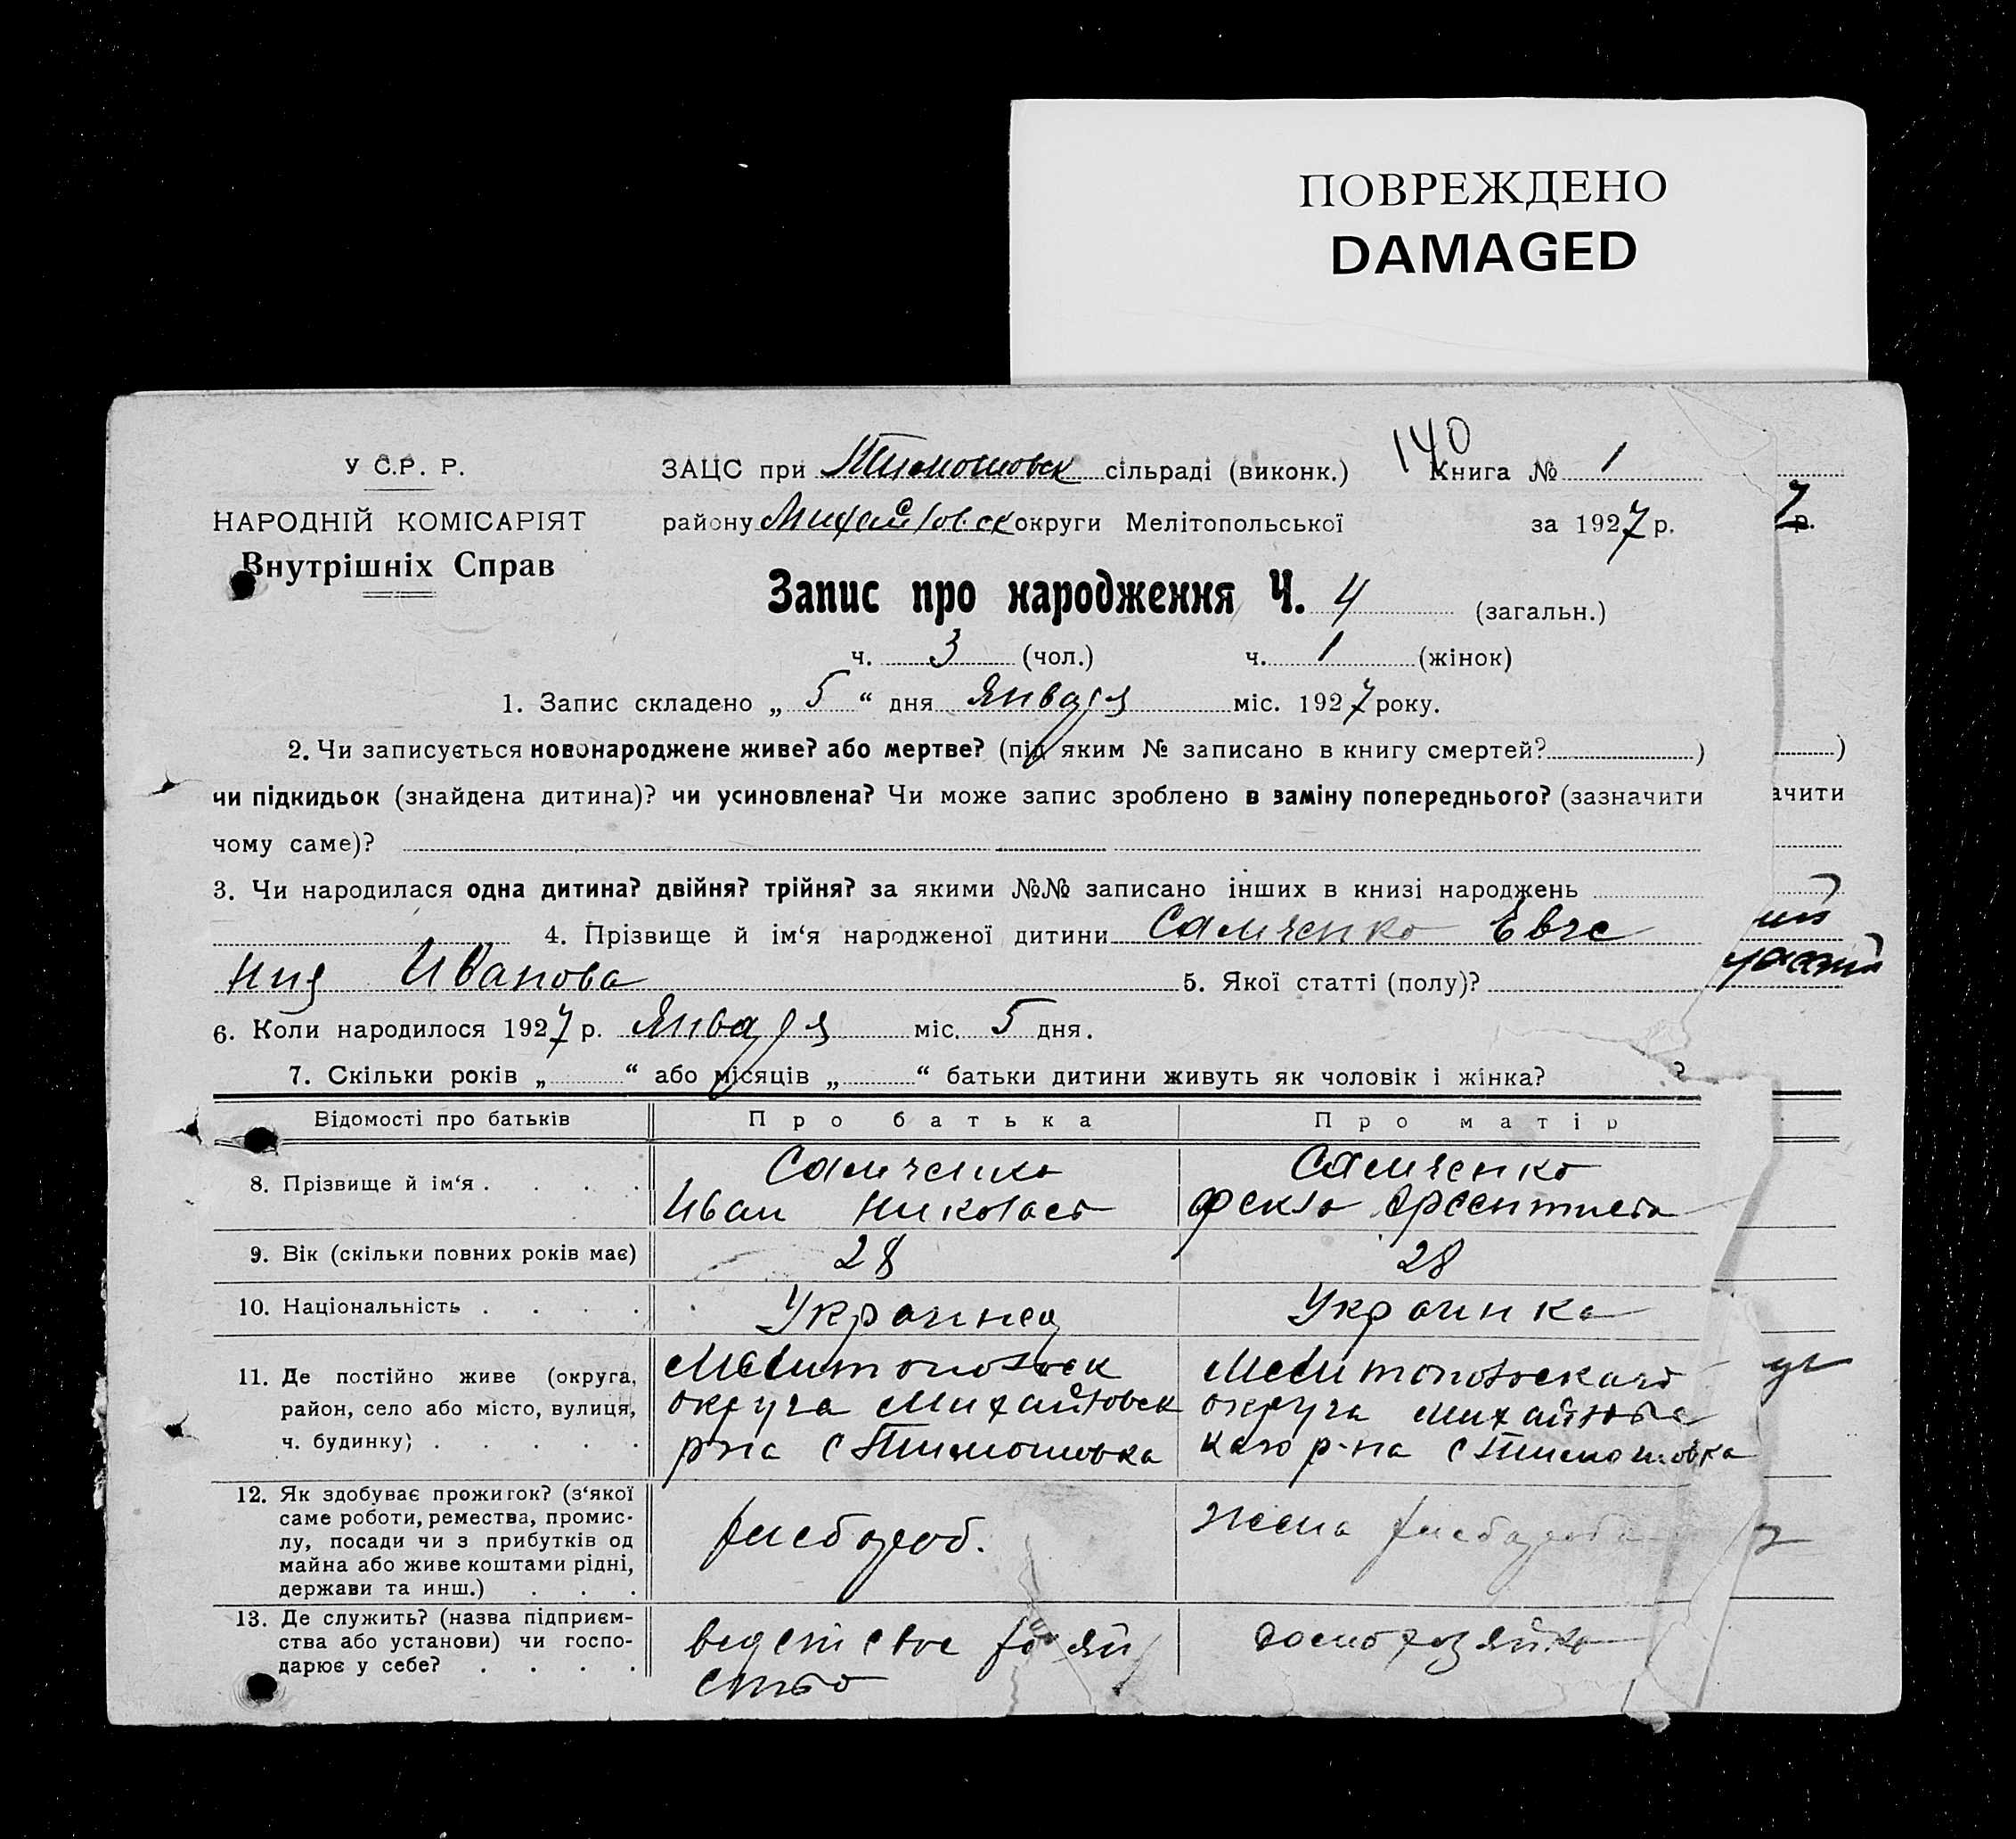 ПОВРЕЖДЕНО
DAMAGED
140
У С.Р. Р.
ЗАЦС при Тимошовск сільраді (виконк.) Книга № 1
НАРОДНІЙ КОМІСАРІЯТ
району Михайловск округи Мелітопольської за 1927 р.
7 р.
Внутрішніх Справ
Запис про народження Ч. 4 (загальн.)
ч. 3 (чол.) ч. 1 (жінок)
1. Запис складено „ 5 “ дня Января міс. 1927 року.
2. Чи записується новонароджене живе? або мертве? (під яким № записано в книгу смертей? ) )
чи підкидьок (знайдена дитина)? чи усиновлена? Чи може запис зроблено в заміну попереднього? (зазначити ачити
чому саме)?
3. Чи народилася одна дитина? двійня? трійня? за якими №№ записано інших в книзі народжень
4. Прізвище й ім‘я народженої дитини Самченко Евге
ния Иванова 5. Якої статті (полу)?
6. Коли народилося 1927 р. Января міс. 5 дня.
7. Скільки років „ “ або місяців „ “ батьки дитини живуть як чоловік і жінка? ?
Відомості про батьків Про батька Про матір
8. Прізвище й ім‘я . . . . Самченко Самченко
Иван Николаев Фекла
9. Вік (скільки повних років має) 28 28
10. Національність . . . . Украинец Украинка
11. Де постійно живе (округа, Мелитопольск Мелитопольскаго
район, село або місто, вулиця, округа Михайловск округа Михайловс
ч. будинку) . . . . . р-на с Тимошовка каго р-на с Тимошовка
12. Як здобуває прожиток? (з‘якої
саме роботи, ремества, промис-
лу, посади чи з прибутків од хлебороб. жена хлебороба
майна або живе коштами рідні,
держави та инш.) . . .
13. Де служить? (назва підприєм-
ства або установи) чи госпо- ведет свое хозяй домохозяйка
дарює у себе? . . . . ство